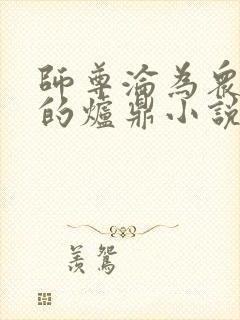 師尊淪為衆
的爐鼎小說
羨鴛